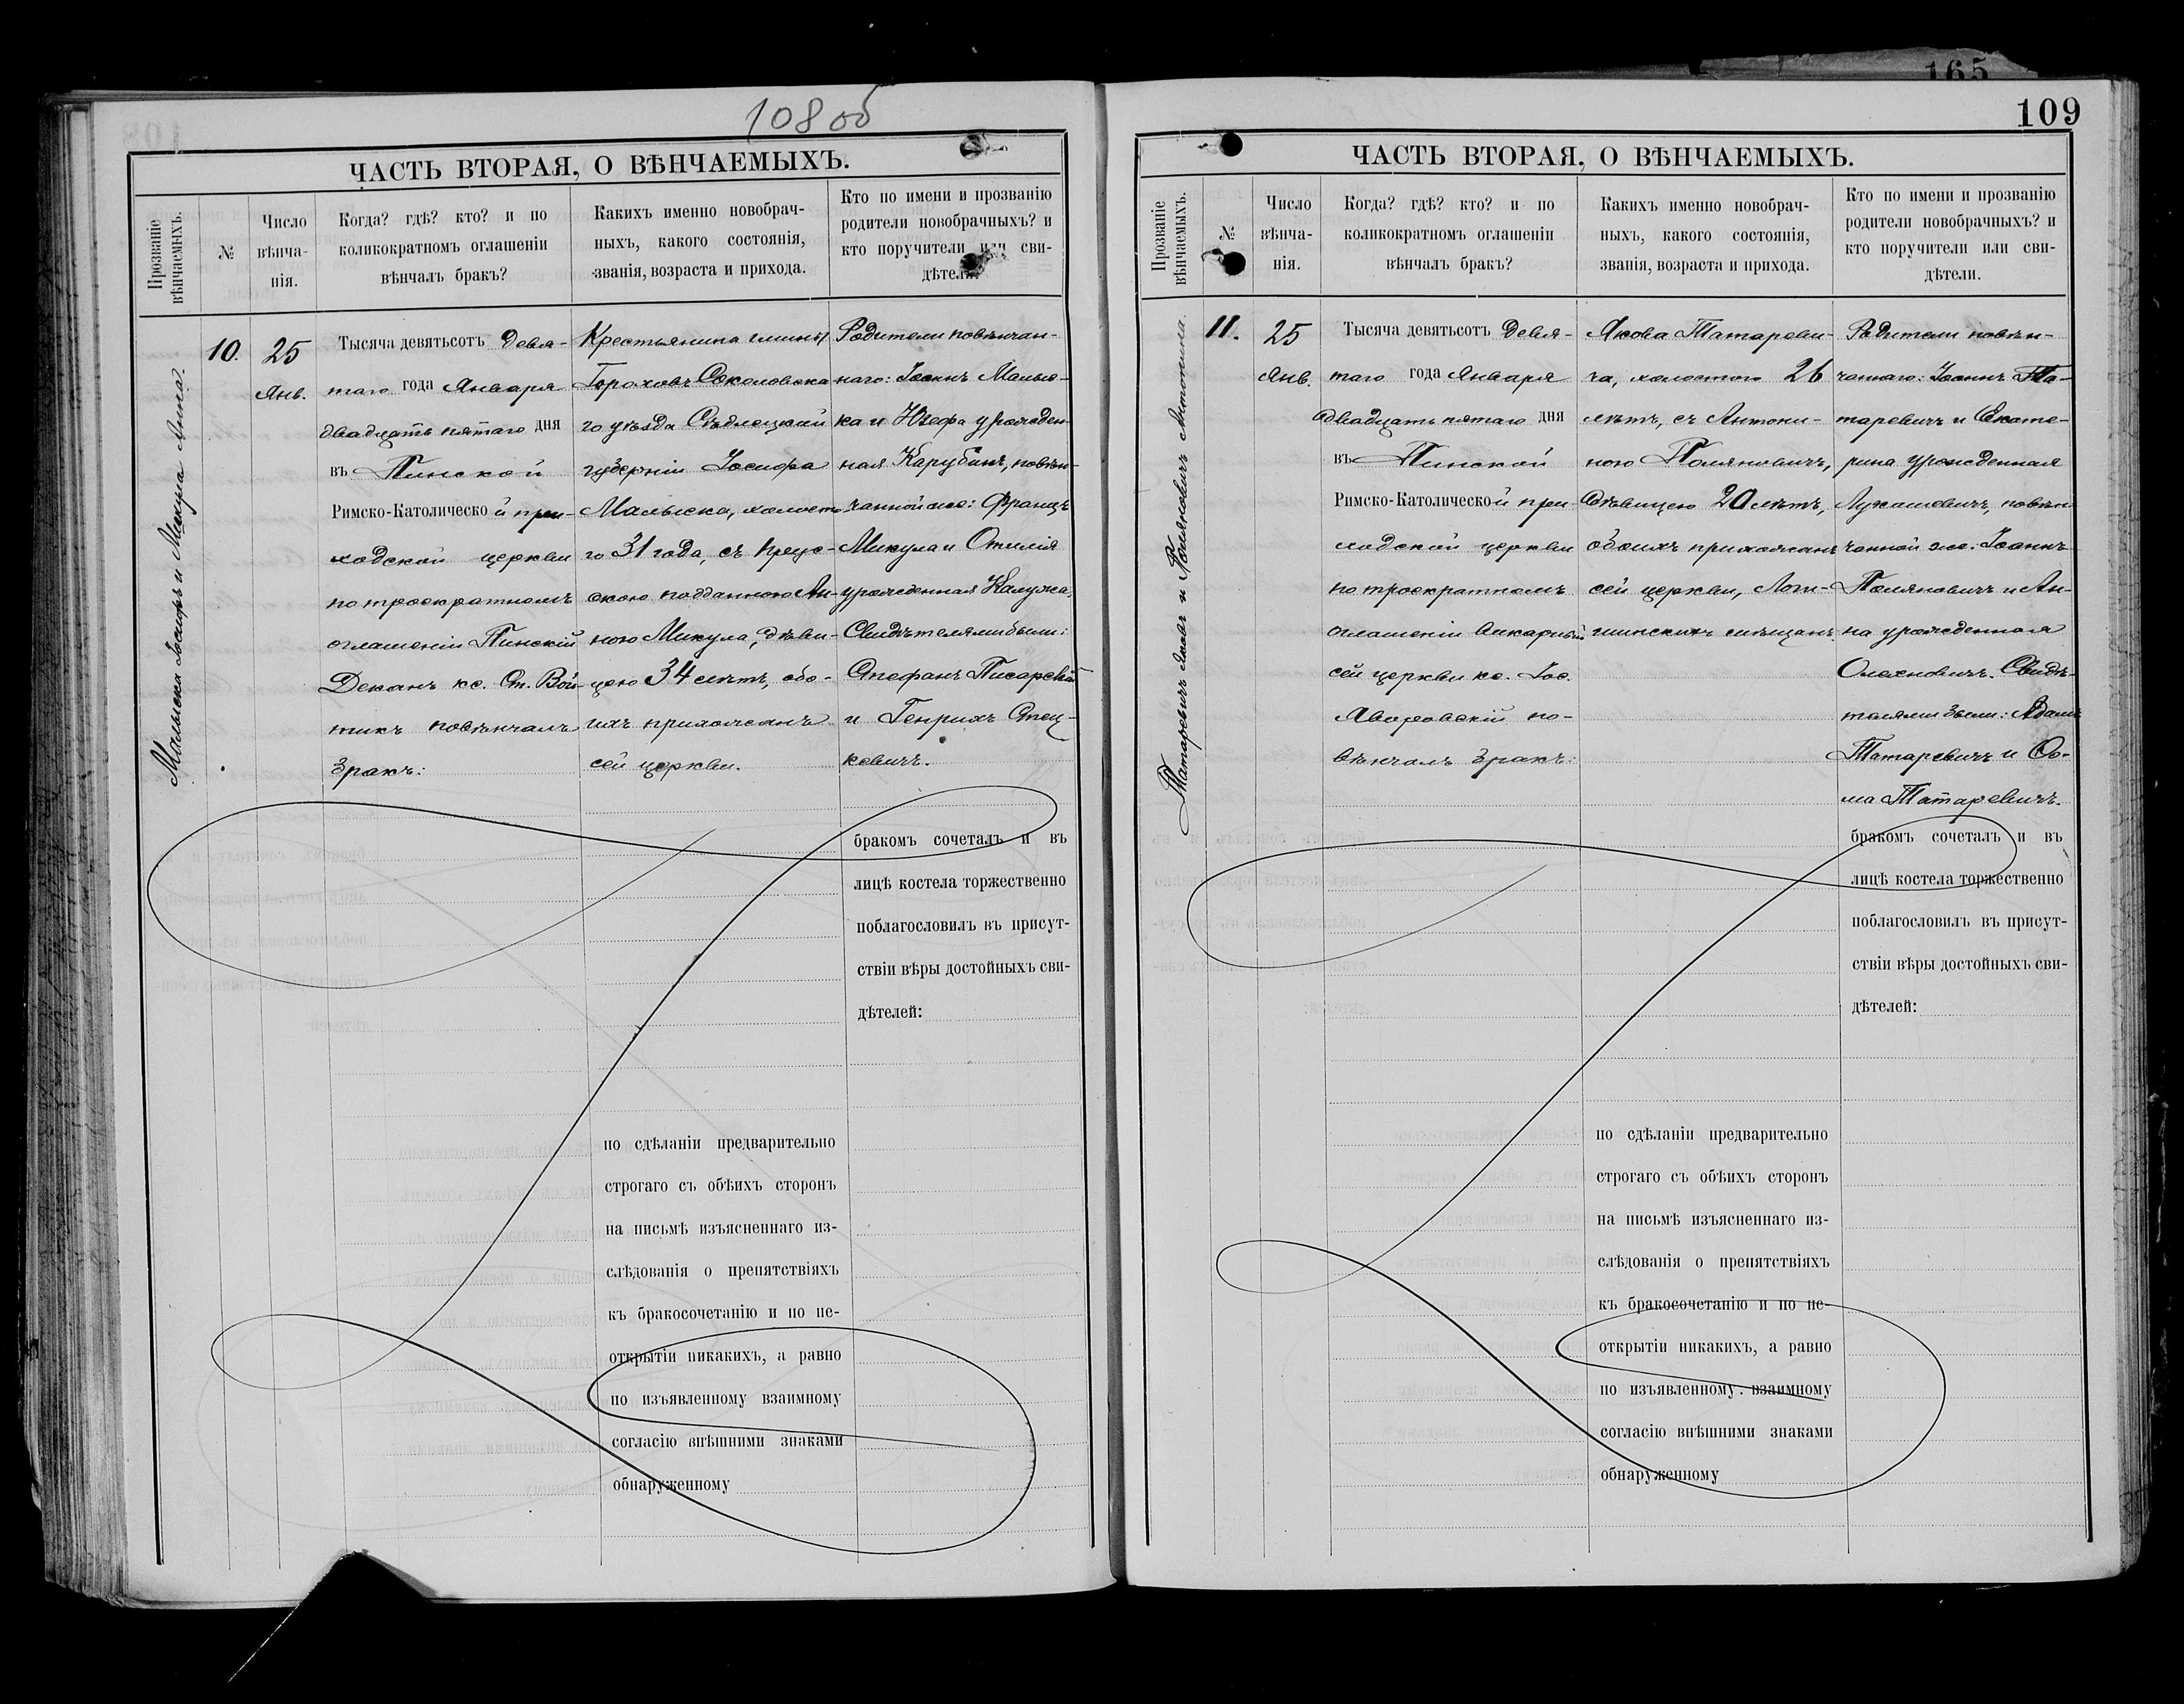 108 об
ЧАСТЬ ВТОРАЯ, О ВѢНЧАЕМЫХЪ.
Прозваніе вѣнчаемыхъ.
№
Число вѣнча-
нія.
Когда? гдѣ? кто? и по
коликократномъ оглашеніи
вѣнчалъ бракъ?
Какихъ именно новобрач-
ныхъ, какого состоянія,
званія, возраста и прихода.
Кто по имени и прозванію
родители новобрачныхъ? и
кто поручители или сви-
дѣтели.
Малыска Іосифъ и Микула Анна.
10.
25
Янв.
Тысяча девятьсотъ Девя-
таго года Января
двадцать пятаго дня
въ Пинской
Римско-Католической при-
ходской церкви
по троекратномъ
оглашеніи Пинскій
Деканъ кс. Ст. Вой-
тикъ повѣнчалъ
бракъ:
Крестьянина гмины
Гороховъ Соколовска
го уѣзда Сѣдлецкой
губерніи Іосифа
Малыска, холосто
го 31 года, съ прус-
скою подданною Ан-
ною Микула, дѣви-
цею 34 лѣтъ, обо-
ихъ прихожанъ
сей церкви.
Родители повѣнчан-
наго: Іоаннъ Малыс-
ка и Юзефа урожден-
ная Карубинъ, повѣн-
чанной же: Францъ
Микула и Отилія
урожденная Калужа,
Свидѣтелями были:
Стефанъ Писарскій
и Генрихъ Стец-
кевичъ.
бракомъ сочеталъ и въ
лицѣ костела торжественно
поблагословилъ въ присут-
ствіи вѣры достойныхъ сви-
дѣтелей:
по сдѣланіи предварительно
строгаго съ обѣихъ сторонъ
на письмѣ изъясненнаго из-
слѣдованія о препятствіяхъ
къ бракосочетанію и по не-
открытіи никакихъ, а равно
по изъявленному взаимному
согласію внѣшними знаками
обнаруженному
165
109
ЧАСТЬ ВТОРАЯ, О ВѢНЧАЕМЫХЪ.
Прозваніе вѣнчаемыхъ.
№
Число
вѣнча-
нія.
Когда? гдѣ? кто? и по
коликократномъ оглашеніи
вѣнчалъ бракъ?
Какихъ именно новобрач-
ныхъ, какого состоянія,
званія, возраста и прихода.
Кто по имени и прозванію
родители новобрачныхъ? и
кто поручители или сви-
дѣтели.
Татаревичъ Яковъ и Поляновичъ Антонина.
11.
25
Янв.
Тысяча девятьсотъ Девя-
таго года Января
двадцать пятаго дня
въ Пинской
Римско-Католической при-
ходской церкви
по троекратномъ
оглашеніи викарный
сей церкви кс. Іос.
Яворовскій по-
вѣнчалъ бракъ:
Якова Татареви-
ча, холостого 26
лѣтъ, съ Антони-
ною Поляновичъ,
дѣвицею 20 лѣтъ,
обоихъ прихожанъ
сей церкви, Логи-
шинскихъ мѣщанъ.
Родители повѣн-
чаннаго: Іоаннъ Та-
таревичъ и Екате-
рина урожденная
Лукашевичъ, повѣн
чанной же: Іоаннъ
Поляновичъ и Ан-
на урожденная
Олехновичъ. Свидѣ-
телями были: Адамъ
Татаревичъ и Ѳо-
ма Татаревичъ.
бракомъ сочеталъ и въ
лицѣ костела торжественно
поблагословилъ въ присут-
ствіи вѣры достойныхъ сви-
дѣтелей:
по сдѣланіи предварительно
строгаго съ обѣихъ сторонъ
на письмѣ изъясненнаго из-
слѣдованія о препятствіяхъ
къ бракосочетанію и по не-
открытіи никакихъ, а равно
по изъявленному взаимному
согласію внѣшними знаками
обнаруженному